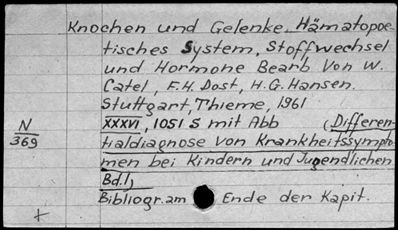 Knochen und Gelenke. Hämatopoe-
tisches System, Stoffwechsel
und Hormone Bearb von W.
Catel, F.H. Dost, H.G. Hansen.
Stuttgart, Thieme, 1961
N
369
XXXVI, 1051 S mit Abb (Differen-
tialdiagnose von Krankheitssympto-
men bei Kindern und Jugendlichen
Bd.1)
Bibliogr. am Ende der Kapit.
+